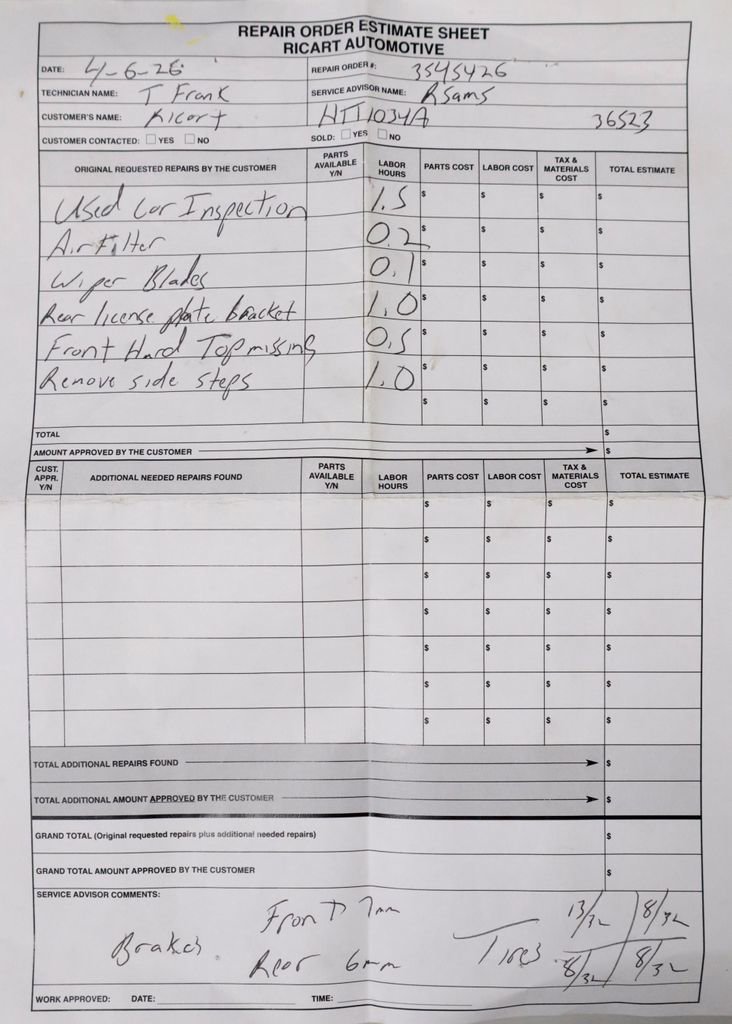 REPAIR ORDER ESTIMATE SHEET
RICART AUTOMOTIVE
DATE: 4-6-26 REPAIR ORDER #: 3545426
TECHNICIAN NAME: T Frank SERVICE ADVISOR NAME: RSams
CUSTOMER'S NAME: Ricart HTT1034A 36523
CUSTOMER CONTACTED: ☐ YES ☐ NO SOLD: ☐ YES ☐ NO
ORIGINAL REQUESTED REPAIRS BY THE CUSTOMER PARTS AVAILABLE Y/N LABOR HOURS PARTS COST LABOR COST TAX & MATERIALS COST TOTAL ESTIMATE
Used Car Inspection 1.5 $ $ $ $
Air Filter 0.2 $ $ $ $
Wiper Blades 0.1 $ $ $ $
Rear license plate bracket 1.0 $ $ $ $
Front Hard Top missing 0.5 $ $ $ $
Remove side steps 1.0 $ $ $ $
$ $ $ $
TOTAL $
AMOUNT APPROVED BY THE CUSTOMER $
CUST. APPR. Y/N ADDITIONAL NEEDED REPAIRS FOUND PARTS AVAILABLE Y/N LABOR HOURS PARTS COST LABOR COST TAX & MATERIALS COST TOTAL ESTIMATE
$ $ $ $
$ $ $ $
$ $ $ $
$ $ $ $
$ $ $ $
$ $ $ $
$ $ $ $
TOTAL ADDITIONAL REPAIRS FOUND $
TOTAL ADDITIONAL AMOUNT APPROVED BY THE CUSTOMER $
GRAND TOTAL (Original requested repairs plus additional needed repairs) $
GRAND TOTAL AMOUNT APPROVED BY THE CUSTOMER $
SERVICE ADVISOR COMMENTS:
Front 7mm 13/32 8/32
Brakes Tires
Rear 6mm 8/32 8/32
WORK APPROVED: DATE: TIME: